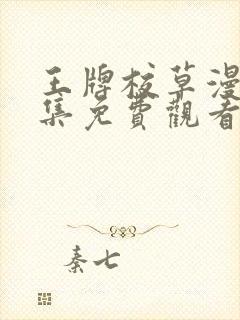 王牌校草漫
集免費觀看
秦七